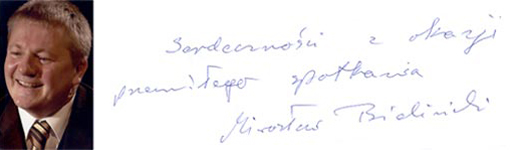 Serdeczności z okazji
przemiłego spotkania
Mirosław Bieliński